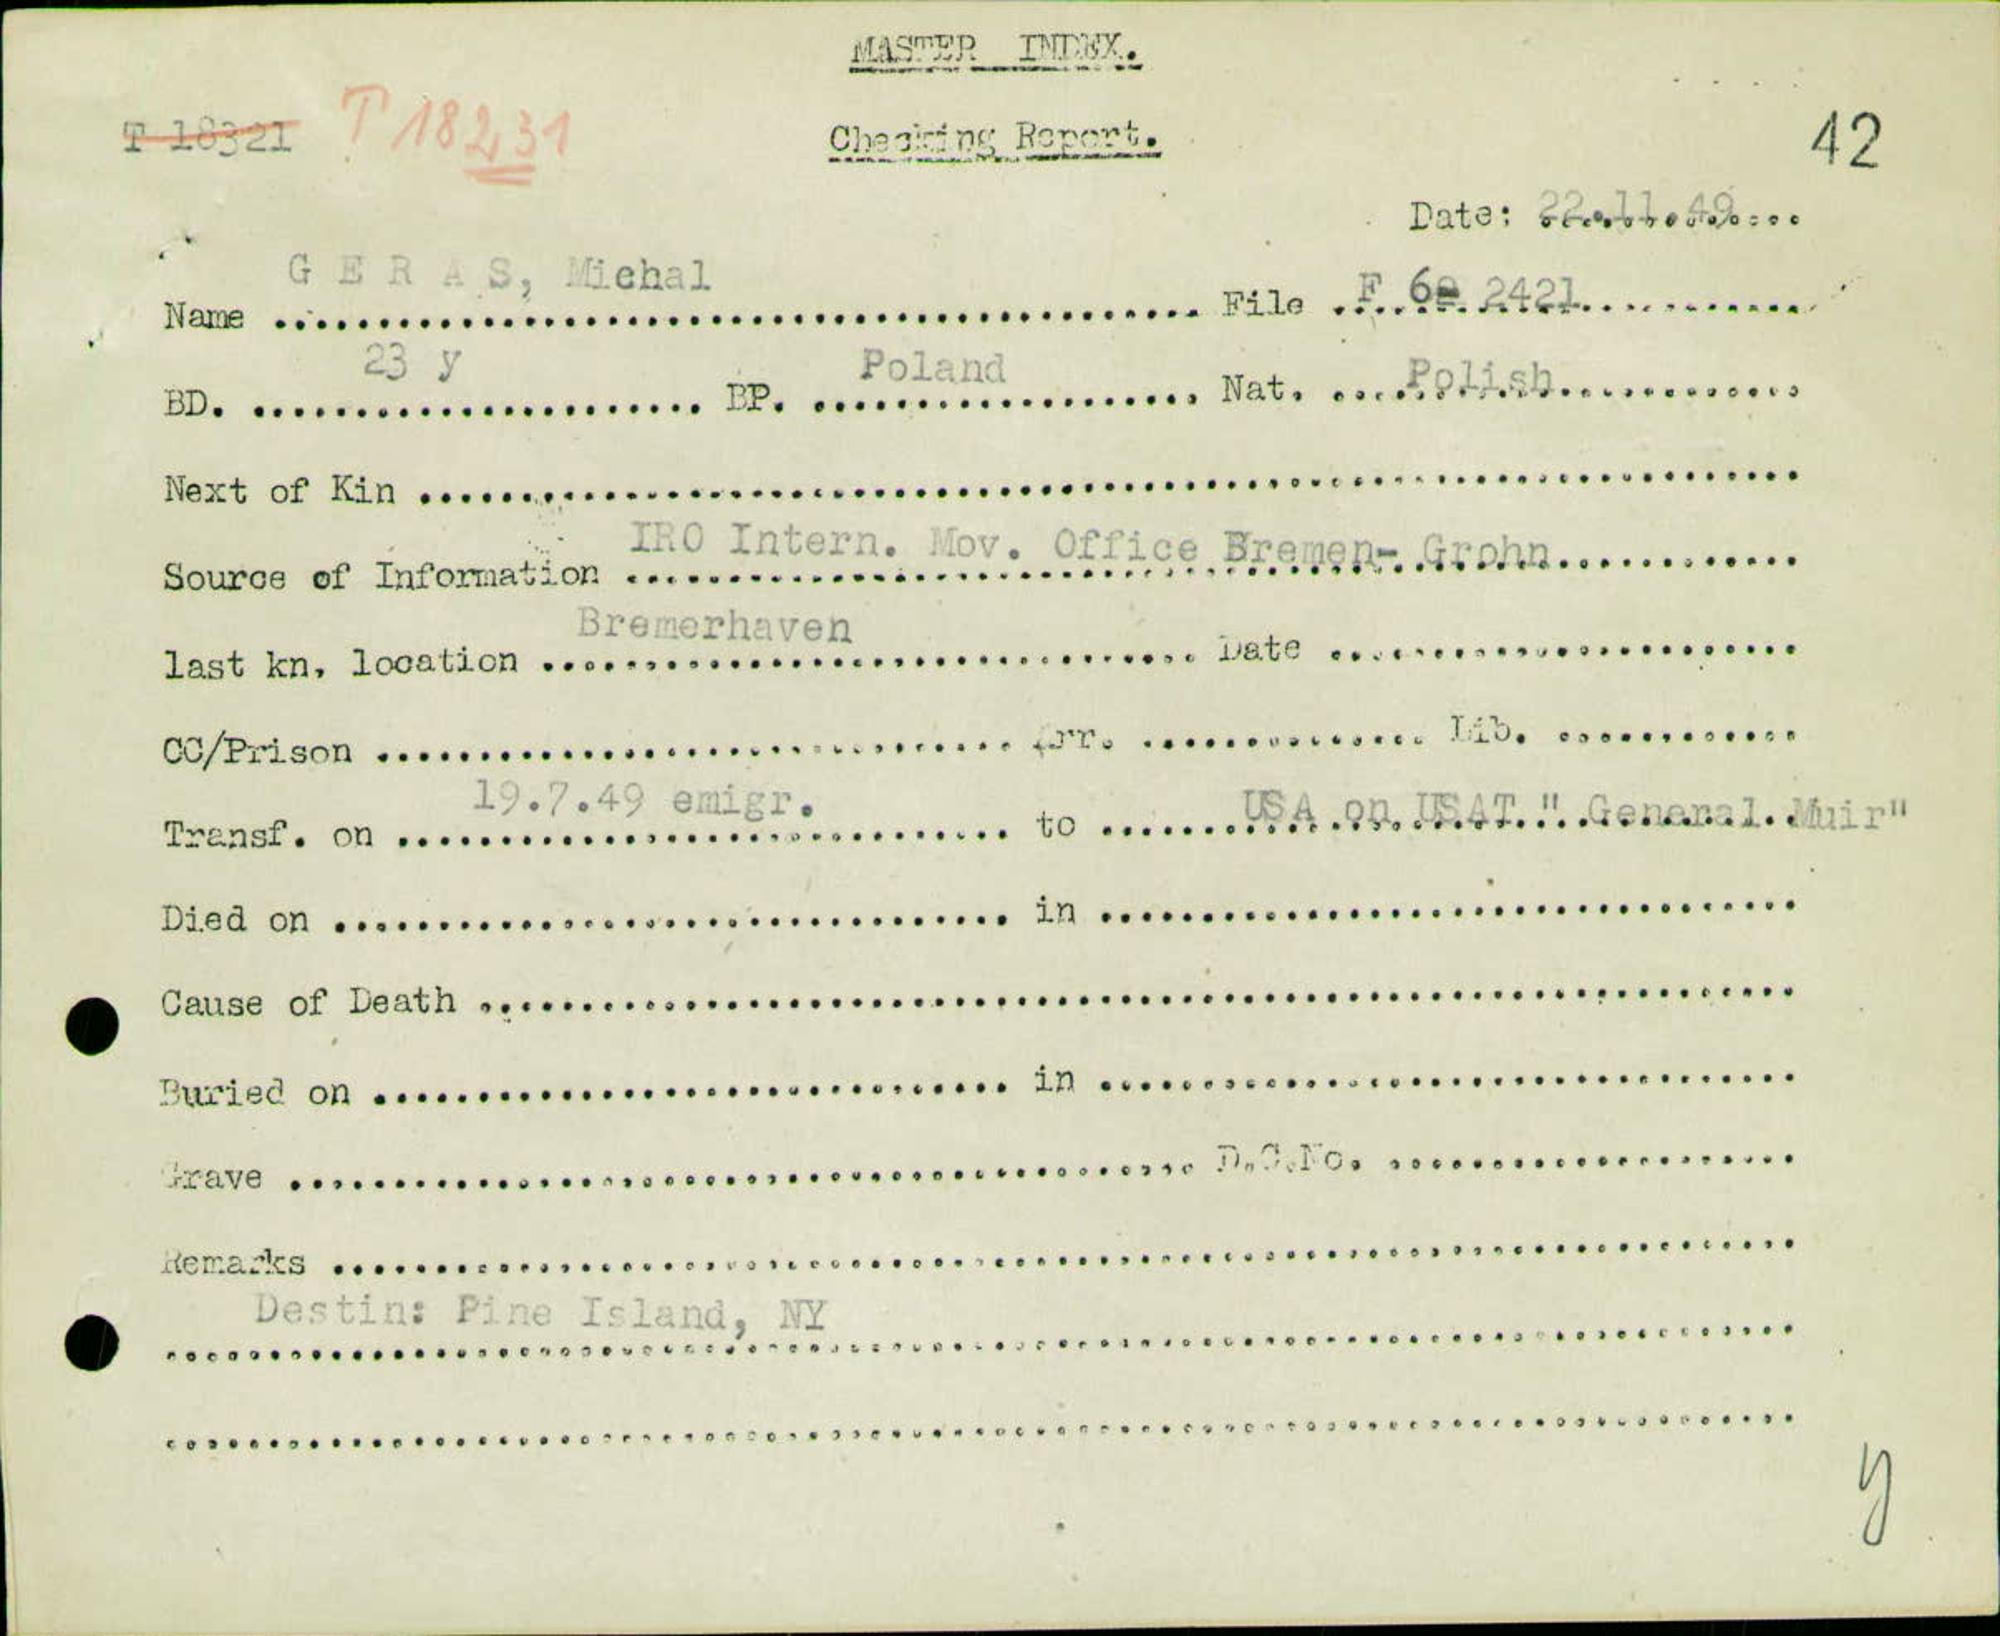 MASTER INDEX.
T 18321 T 18231
Checking Report.
42
Date: 22.11.49
Name G E R A S, Michal File F 6 2421
BD. 23 y BP. Poland Nat. Polish
Next of Kin
Source of Information IRO Intern. Mov. Office Bremen- Grohn
last kn. location Bremerhaven Date
CC/Prison Arr. Lib.
Transf. on 19.7.49 emigr. to USA on USAT " General Muir"
Died on in
Cause of Death
Buried on in
Grave D.C.No.
Remarks
Destin: Pine Island, NY
y